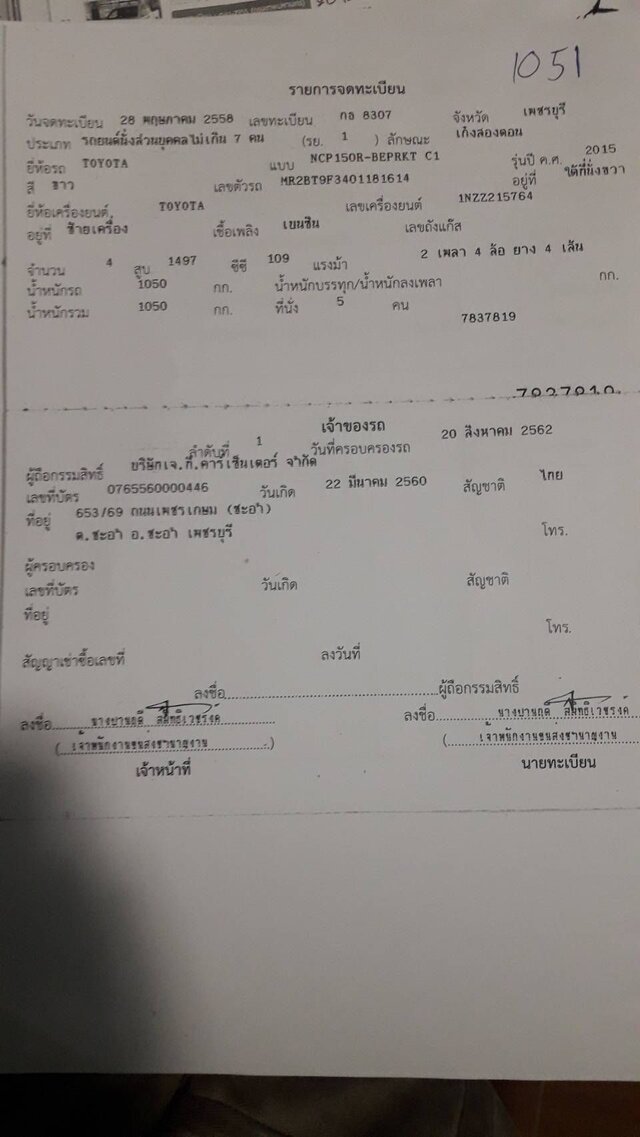 1051
รายการจดทะเบียน
วันจดทะเบียน 28 พฤษภาคม 2558 เลขทะเบียน กธ 8307 จังหวัด เพชรบุรี
ประเภท รถยนต์นั่งส่วนบุคคลไม่เกิน 7 คน (รย. 1 ) ลักษณะ เก๋งสองตอน
ยี่ห้อรถ TOYOTA แบบ NCP150R-BEPRKT C1 รุ่นปี ค.ศ. 2015
สี ขาว เลขตัวรถ MR2BT9F3401181614 อยู่ที่ ใต้ที่นั่งขวา
ยี่ห้อเครื่องยนต์ TOYOTA เลขเครื่องยนต์ 1NZZ215764
อยู่ที่ ซ้ายเครื่อง เชื้อเพลิง เบนซิน เลขถังแก๊ส
จำนวน 4 สูบ 1497 ซีซี 109 แรงม้า 2 เพลา 4 ล้อ ยาง 4 เส้น
น้ำหนักรถ 1050 กก. น้ำหนักบรรทุก/น้ำหนักลงเพลา กก.
น้ำหนักรวม 1050 กก. ที่นั่ง 5 คน
7837819
เจ้าของรถ
ลำดับที่ 1 วันที่ครอบครองรถ 20 สิงหาคม 2562
ผู้ถือกรรมสิทธิ์ บริษัทเจ.ที.คาร์เซ็นเตอร์ จำกัด
เลขที่บัตร 0765560000446 วันเกิด 22 มีนาคม 2560 สัญชาติ ไทย
ที่อยู่ 653/69 ถนนเพชรเกษม (ชะอำ)
ต.ชะอำ อ.ชะอำ เพชรบุรี โทร.
ผู้ครอบครอง
เลขที่บัตร วันเกิด สัญชาติ
ที่อยู่
โทร.
สัญญาเช่าซื้อเลขที่ ลงวันที่
ลงชื่อ ผู้ถือกรรมสิทธิ์
ลงชื่อ ลงชื่อ
(เจ้าพนักงานขนส่งชำนาญงาน) (เจ้าพนักงานขนส่งชำนาญงาน
เจ้าหน้าที่ นายทะเบียน